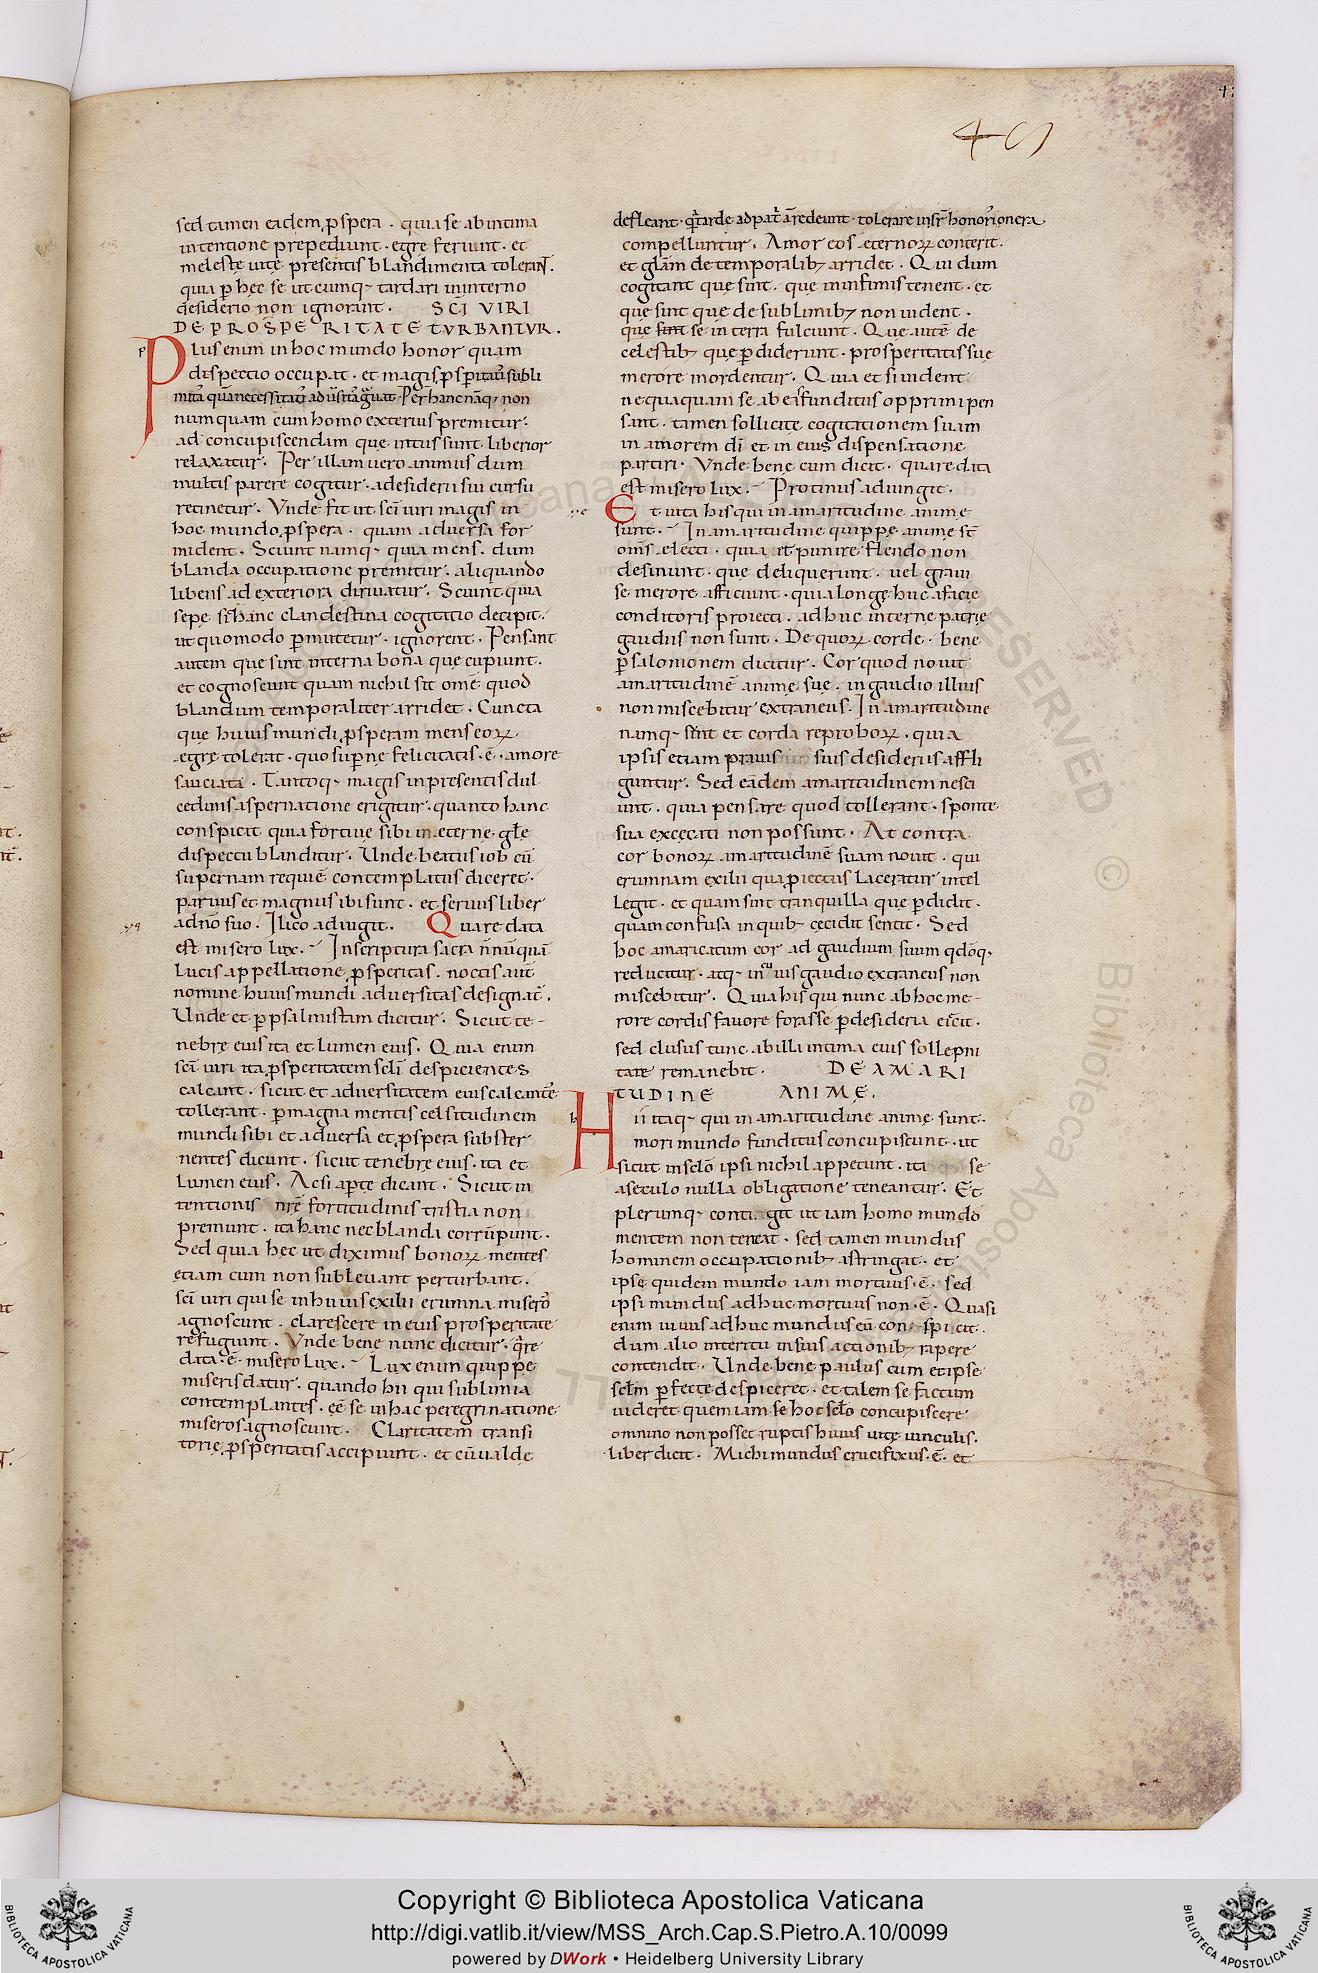 49
sed tamen eadem ꝓspera . quia se ab intima
intentione prepediunt . egre ferunt . et
meleste uitę presentis blandimenta toleraɴ̄t .
quia ꝑ hęc se ut cumq; tardari in interno
desiderio non ignorant . SC̄I VIRI
DE PROSPERITATE TVRBANTVR .
Plus enim in hoc mundo honor quam
dispectio occupat . et magis ꝓsꝑitatis subli
nunquam cum homo exterius premitur .
ad concupiscendam que intus sunt liberior
relaxatur . Per illam uero animus dum
multis parere cogitur . a desiderii sui cursu
retinetur . Vnde fit ut sc̄i uiri magis in
hoc mundo ꝓspera . quam aduersa for
mident . Sciunt namq; quia mens . dum
blanda occupatione premitur . aliquando
libens ad exteriora diriuatur . Sciunt quia
sepe sic hanc clandestina cogitatio decipit .
ut quomodo ꝑmutetur . ignorent . Pensant
autem que sint interna bona que cupiunt .
et cognoscunt quam nichil sit om̄e quod
blandum temporaliter arridet . Cuncta
que huius mundi ꝓsperam mens eoꝝ
egrę tolerat . quo suꝑne felicitatis . ē . amore
sauciata . Tantoq; magis in presentis dul
cedinis aspernatione erigitur . quanto hanc
conspicit quia fortiue sibi in ęterne gl̄e
dispectu blanditur . Unde beatus iob cū
supernam requiē contemplatus diceret .
paruus et magnus ibi sunt . et seruus liber
a dn̄o suo . Ilico adiugit . Quare data
est misero lux . In scriptura sacra n̄nūquā
lucis appellatione ꝓsperitas . noctis autē
nomine huius mundi aduersitas designat̄ .
Unde et ꝑ psalmistam dicitur . Sicut te-
nebrę eius ita et lumen eius . Quia enim
sc̄i uiri ita ꝓsperitatem sc̄li despicientes
calcant . sicut et aduersitatem eius calcantē
tollerant . ꝑ magna mentis celsitudinem
mundi sibi et aduersa et ꝓspera subster
nentes dicunt . sicut tenebrę eius . ita et
lumen eius . Ac si aꝑte dicant . Sicut in
tentionis nr̄ę fortitudinis tristia non
premunt . ita hanc nec blanda corrūpunt .
Sed quia hęc ut diximus bonoꝝ mentes
etiam cum non subleuant perturbant .
sc̄i uiri qui se in huius exilii erumna miserō
agnoscunt . clarescere in eius prosperitate
refugiunt . Vnde bene nunc dicitur . q̄re
data . ē . misero lux . Lux enim quippe
miseris datur . quando hii qui sublimia
contemplantes . eē se in hac peregrinatione
miseros agnoscunt . Claritatem transi
torię ꝓsperitatis accipiunt . et cū ualde
defleant . q̄ tarde ad pat̄ām redeunt . tolerare insup̄ honoris onera
compelluntur . Amor eos ęternoꝝ conterit .
et gl̄am de temporalib; arridet . Qui dum
cogitant que sint . que in infimis tenent . et
que sint que de sublimib; non uident .
que sunt se in terra fulciunt . Que autē de
celestib; que ꝑdiderunt . prosperitatis sue
merore mordentur . Quia et si uident
nequaquam se ab ea funditus opprimi pen
sant . tamen sollicite cogitationem suam
in amorem dī et in eius dispensatione
partiri . Vnde bene cum dicit . quare data
est misero lux . Protinus adiungit .
Et uita his qui in amaritudine anime
sunt . In amaritudine quippe anime st̄
om̄s electi . quia et punire flendo non
desinunt . que deliquerunt . uel graui
se merore afficiunt . quia longe huc a facie
conditoris proiecti . adhuc interne patrie
gaudiis non sunt . De quoꝝ corde . bene
ꝑ salomonem dicitur . Cor quod nouit
amaritudinē anime sue . in gaudio illius
non miscebitur extraneus . In amaritudine
namq; sunt et corda reproboꝝ . quia
ipsis etiam prauis suis desideriis affli
guntur . Sed eādem amaritudinem nesci
unt . quia pensare quod tollerant . sponte
sua excecati non possunt . At contra
cor bonoꝝ amaritudinē suam nouit . qui
erumnam exilii qua ꝓiectus laceratur intel
legit . et quam sint tranquilla que ꝑdidit .
quam confusa in quib; cecidit sentit . Sed
hoc amaricatum cor ad gaudium suum qdōq;
reducitur . atq; in cuius gaudio extraneus non
miscebitur . Quia his qui nunc ab hoc me-
rore cordis fauore foras se ꝑ desideria eicit .
sed clusus tunc ab illi intima eius sollepni
tate remanebit . DE AMARI
TUDINE ANIME .
Hii itaq; qui in amaritudine anime sunt .
mori mundo funditus concupiscunt . ut
sicut in sclō ipsi nichil appetunt . ita se
a seculo nulla obligatione teneantur . Et
plerumq; contingit ut iam homo mundō
mentem non teneat . sed tamen mundus
hominem occupationib; astringat . et
ipse quidem mundo iam mortuus . ē . sed
ipsi mundus adhuc mortuus non . ē . Quasi
enim uiuus adhuc mundus eū conspicit .
dum alio intentū in suis actionib; rapere
contendit . Unde bene paulus cum et ipse
scl̄m ꝑfecte despiceret . et talem se factum
uideret quem iam se hoc scl̄o concupiscere
omnino non posset ruptis huius uitę uinculis .
liber dicit . Michi mundus crucifixus . ē . et
Copyright © Biblioteca Apostolica Vaticana
http://digi.vatlib.it/view/MSS_Arch.Cap.S.Pietro.A.10/0099
powered by DWork • Heidelberg University Library